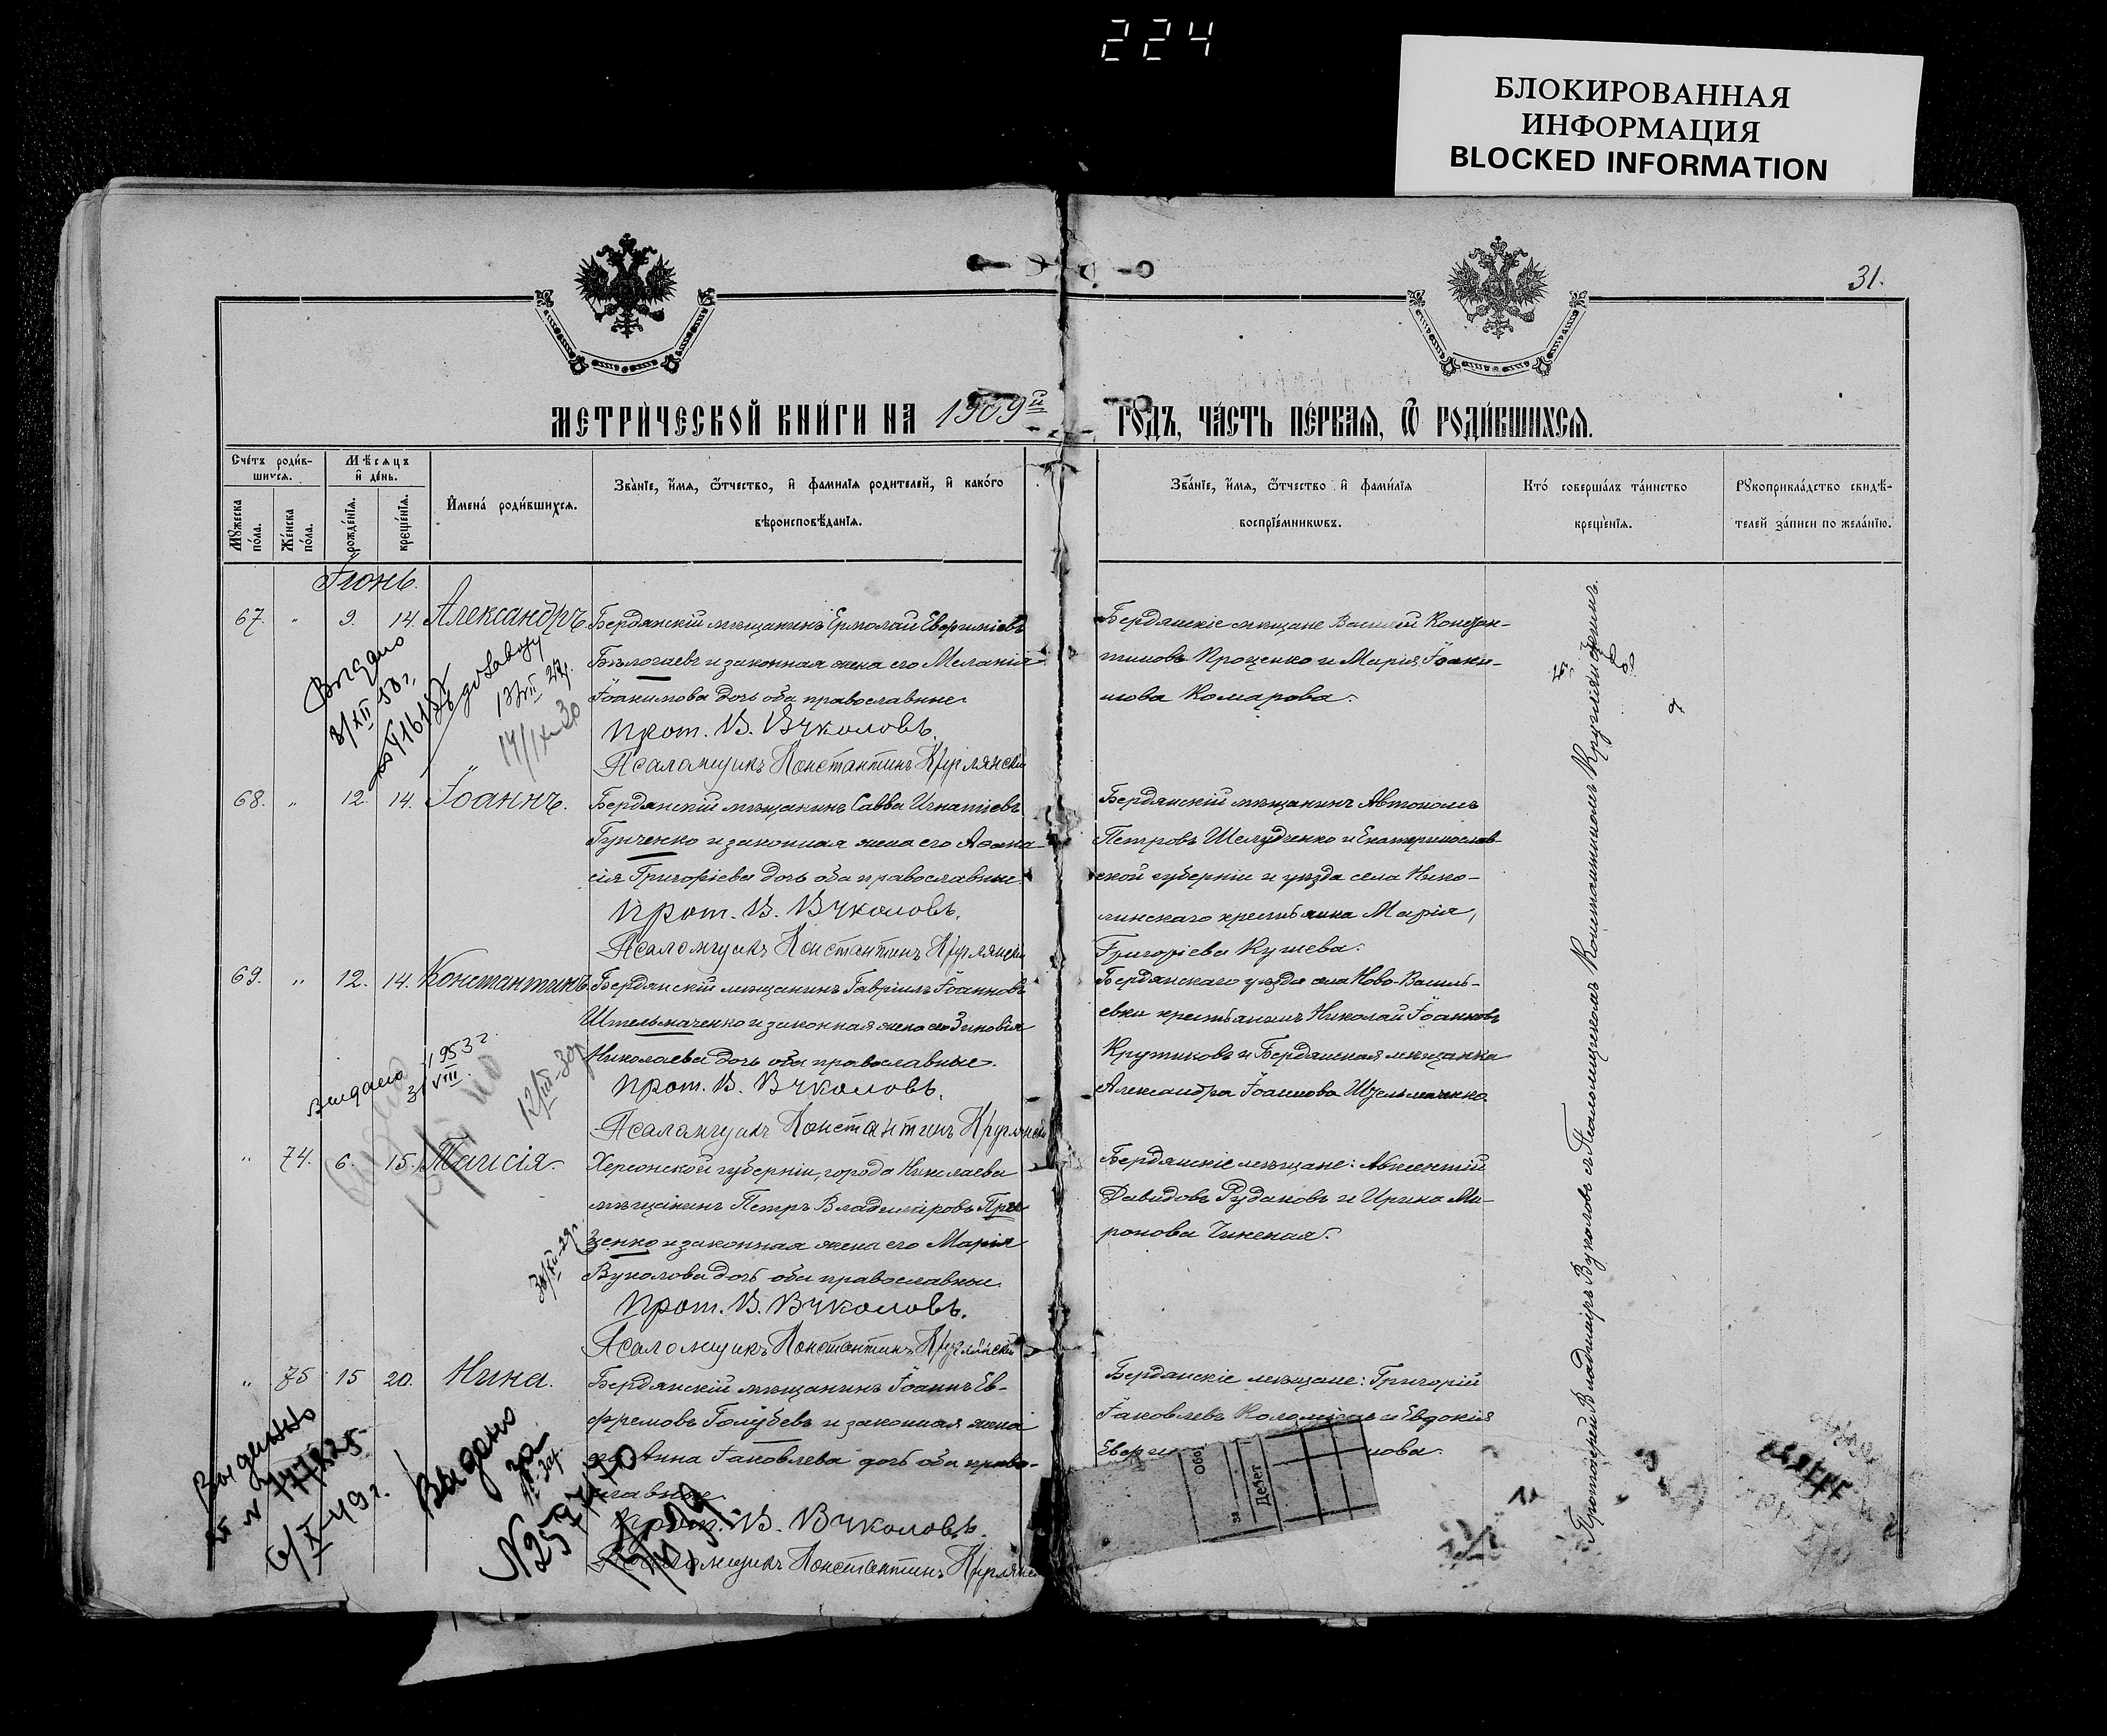 224
БЛОКИРОВАННАЯ
ИНФОРМАЦИЯ
BLOCKED INFORMATION
31.
МЕТРИ́ЧЕСКОЙ КНИ́ГИ НА 1909й
ГОДЪ, ЧА́СТЬ ПЕ́РВАѦ, Ѽ РОДИ́ВШИХСѦ.
Сче́тъ роди́в-
шихсѧ.
Мꙋжеска по́ла.
Же́нска по́ла.
Мѣ́сѧцъ
и҆ де́нь.
рожде́нїѧ.
креще́нїѧ.
И҆мена̀ роди́вшихсѧ.
Зва́нїе, и҆́мѧ, ѻ҆́тчество, и҆ фамилїѧ родителей, и҆ како́го
вѣроисповѣ́данїѧ.
Зва́нїе, и҆́мѧ, ѻ҆́тчество и҆ фами́лїѧ
воспрїе́мникѡвъ.
Кто́ соверша́лъ та́инство
креще́нїѧ.
Рꙋкоприкла́дство свидѣ́-
телей за́писи по жела́нїю.
Іюнь.
67. " 9. 14. Александръ.
Бердянскій мѣщанинъ Ермолай Евфиміевъ
Бѣлогаевъ и законная жена его Меланія
Іоакимова дочь оба православные.
Прот. В. Вуколовъ.
Псаломщикъ Константинъ Круглянскій
Бердянскіе мѣщане Василій Констан-
тиновъ Проценко и Марія Іоаки-
мова Комарова.
Выдано
8/XII 50 г.
68. " 12. 14. Іоаннъ.
Бердянскій мѣщанинъ Савва Игнатіевъ
Гунченко и законная жена его Афана-
сія Григоріева дочь оба православные.
Прот. В. Вуколовъ.
Псаломщикъ Константинъ Круглянскій
Бердянскій мѣщанинъ Автономъ
Петровъ Шелудченко и Екатеринослав-
ской губерніи и уѣзда села Нико-
линскаго крестьянка Марія,
Григоріева Кушева.
69. " 12. 14. Константинъ
Бердянскій мѣщанинъ Гавріилъ Іоанновъ
Штельмаченко и законная жена его Зиновія
Николаева дочь оба православные.
Прот. В. Вуколовъ.
Псаломщикъ Константинъ Круглянскій
Бердянскаго уѣзда села Ново-Василь-
евки крестьянинъ Николай Іоанновъ
Крутиковъ и Бердянская мѣщанка
Александра Іоаннова Штельмаченко.
Выдано 1953 г.
31/VIII.
" 74. 6. 15. Таисія.
Херсонской губерніи, города Николаева
мѣщанинъ Петръ Владиміровъ При-
щенко и законная жена его Марія
Вуколова дочь оба православные.
Прот. В. Вуколовъ.
Псаломщикъ Константинъ Круглянскій
Бердянскіе мѣщане: Авксентій
Давидовъ Рудаковъ и Ирина Ми-
ронова
" 75 15 20. Нина.
Бердянскій мѣщанинъ Іоаннъ Ев-
фремовъ Голубевъ и законная жена
его Анна Іаковлева дочь оба право-
славные.
Прот. В. Вуколовъ.
Псаломщикъ Константинъ Круглянскій
Бердянскіе мѣщане: Григорій
Іаковлевъ и Евдокія
Выдано
за
6/X-49 г.
Дебет
Протоіерей Владиміръ Вуколовъ съ Псаломщикомъ Константиномъ Круглянскимъ